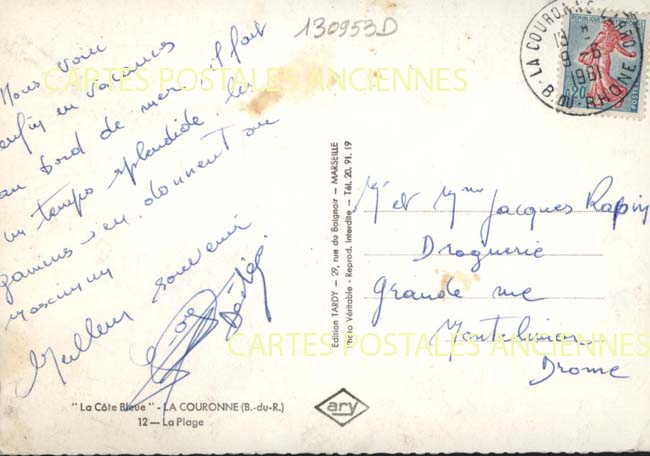 130953D
LA COURONNE
B. DU RHONE
13 H
9 - 6
1961
REPUBLIQUE
0,20
POSTES
Nous voici
enfin en vacances
au bord de mer. il fait
un temps splendide. les
gamins s'en donnent au
maximum
Meilleur souvenir
CARTES POSTALES ANCIENNES
Edition TARDY — 29, rue du Baignoir — MARSEILLE
Photo Véritable - Reprod. Interdite — Tél. 20. 91. 19
Mr et Mme Jacques Rapin
Droguerie
Grande rue
Montelimar
Drome
CARTES POSTALES ANCIENNES
"La Côte Bleue" - LA COURONNE (B.-du-R.)
12 — La Plage
ary